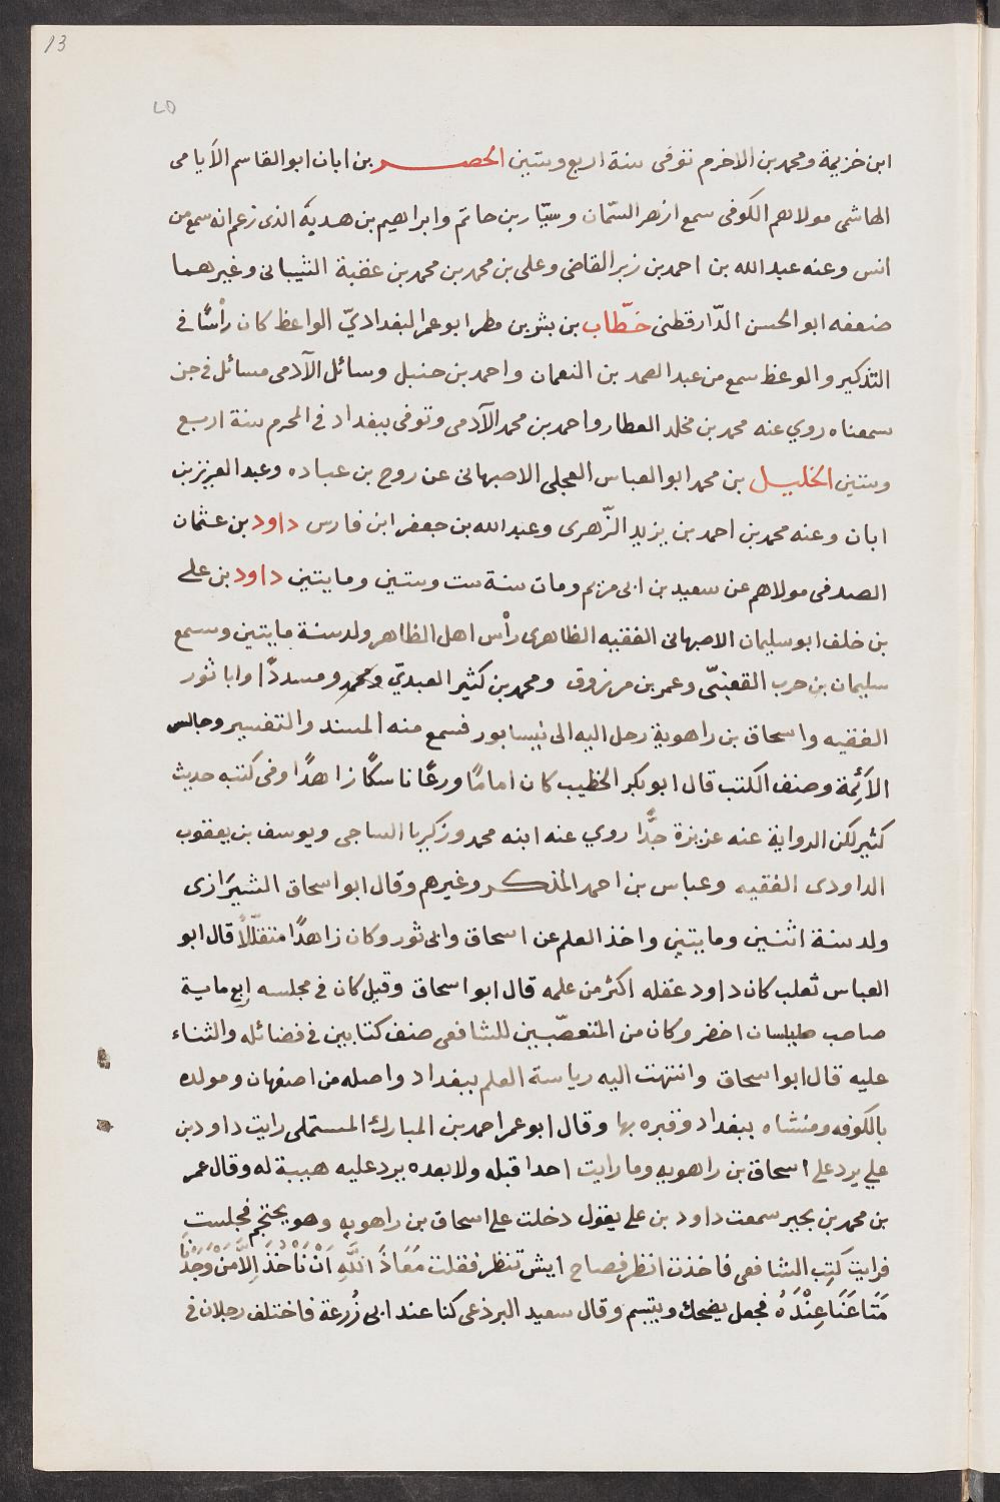 13
ابن خزيمة ومحمد بن الاخرم توفى سنة اربع وستين الحصر بن ابان ابو القاسم الأيامى
الهاشمى مولاهم الكوفى سمع ازهر السّمان وسيّار بن حاتم وابراهيم بن هدبة الذى زعم انه سمع من
انس وعنه عبد الله بن احمد بن زبر القاضى وعلى بن محمد بن محمد بن عقبة الشيبانى وغيرهما
ضعفه ابو الحسن الدّارقطنى خطّاب بن بشر بن مطر ابو عمر البغداديّ الواعظ كان رأسًا فى
التذكير والوعظ سمع من عبد الصمد بن النعمان واحمد بن حنبل وسائل الآدمى مسائل فى جزء
سمعناه روي عنه محمد بن مخلد العطار واحمد بن محمد الآدمى وتوفى ببغداد فى المحرم سنة اربع
وستين الخليل بن محمد ابو العباس العجلى الاصبهانى عن روح بن عباده وعبد العزيز بن
ابان وعنه محمد بن احمد بن يزيد الزّهرى وعبد الله بن جعفر ابن فارس داود بن عثمان
الصدفى مولاهم عن سعيد بن ابى مريم ومات سنة ست وستين ومايتين داود بن على
بن خلف ابو سليمان الاصبهانى الفقيه الظاهرى رأس اهل الظاهر ولد سنة مايتين وسمع
سليمان بن حرب القعنبّى وعمر بن مرزوق ومحمد بن كثير العبديّ ومحمد ومسددًا وابا ثور
الفقيه واسحاق بن راهوية رحل اليه الى نيسابور فسمع منه المسند والتفسير وجالس
الأئمة وصنف الكتب قال ابو بكر الخطيب كان امامًا ورعًا ناسكًا زاهدًا وفى كتبه حديث
كثير لكن الرواية عنه عزيزة جدًّا روي عنه ابنه محمد وزكريا الساجى ويوسف بن يعقوب
الداودى الفقيه وعباس بن احمد المذكر وغيرهم وقال ابو اسحاق الشيرازى
ولد سنة اثنين ومايتين واخذ العلم عن اسحاق وابى ثور وكان زاهدًا متقلّلًا قال ابو
العباس ثعلب كان داود عقله اكثر من علمه قال ابو اسحاق وقيل كان فى مجلسه اربع ماية
صاحب طيلسان اخضر وكان من المتعصّبين للشافعى صنف كتابين فى فضائله والثناء
عليه قال ابو اسحاق وانتهت اليه رياسة العلم ببغداد واصله من اصفهان ومولده
بالكوفه ومنشاه ببغداد وقبره بها وقال ابو عمر احمد بن المبارك المستملى رايت داود بن
علي يرد على اسحاق بن راهويه وما رايت احدا قبله ولا بعده يرد عليه هيبة له وقال عمر
بن محمد بن بجير سمعت داود بن على يقول دخلت على اسحاق بن راهويه وهو يحتجم فجلست
فرايت كتب الشافعى فاخذت انظر فصاح ايش تنظر فقلت مَعَاذَ اللَّهِ اَنْ نَأْخُذَ اِلاَّ مَنْ وَجَدْنَا
مَتَاعَنَا عِنْدَهُ فجعل يضحك ويتبسم وقال سعيد البرذعى كنا عند ابى زُرعة فاختلف رجلان فى